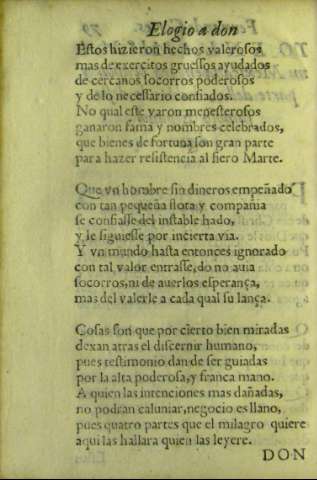 Elogio a don
Estos hizieron hechos valerosos
mas de exercitos gruessos ayudados
de cercanos socorros poderosos
y de lo necessario confiados.
No qual este varon menesterosos
ganaron fama y nombres celebrados,
que bienes de fortuna son gran parte
para hazer resistencia al fiero Marte.
Que vn hombre sin dineros empeñado
con tan pequeña flota y compañia
se confiasse del instable hado,
y le siguiesse por incierta via.
Y vn mundo hasta entonces ignorado
con tal valor entrasse, do no auia
socorros, ni de auerlos esperança,
mas del valerle a cada qual su lança.
Cosas son que por cierto bien miradas
dexan atras el discernir humano,
pues testimonio dan de ser guiadas
por la alta poderosa, y franca mano.
A quien las intenciones mas dañadas,
no podran caluniar, negocio es llano,
pues quatro partes que el milagro quiere
aqui las hallara quien las leyere.
DON